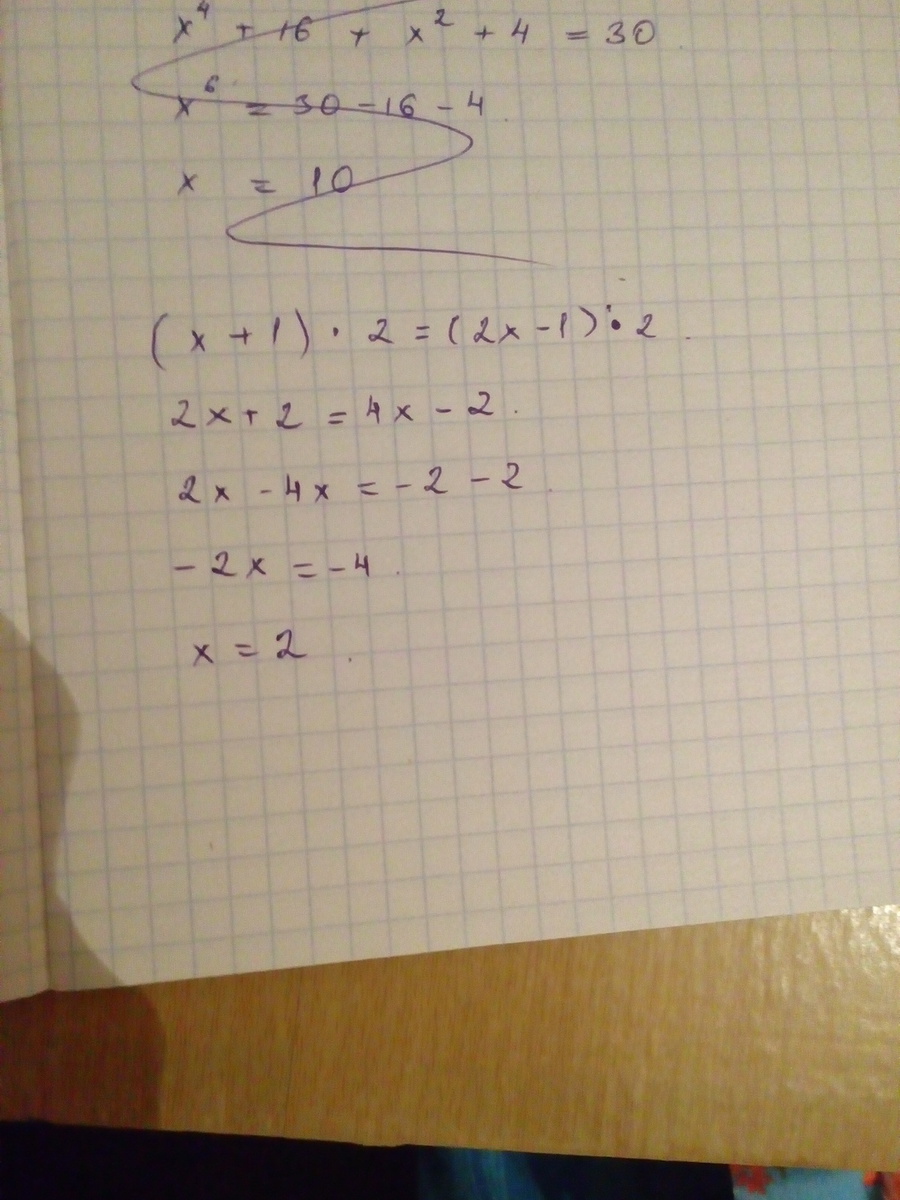 x⁴ + 16 + x² + 4 = 30
x⁶ = 30 - 16 - 4
x = 10
(x + 1) · 2 = (2x - 1) · 2
2x + 2 = 4x - 2.
2x - 4x = -2 - 2
- 2x = -4.
x = 2.